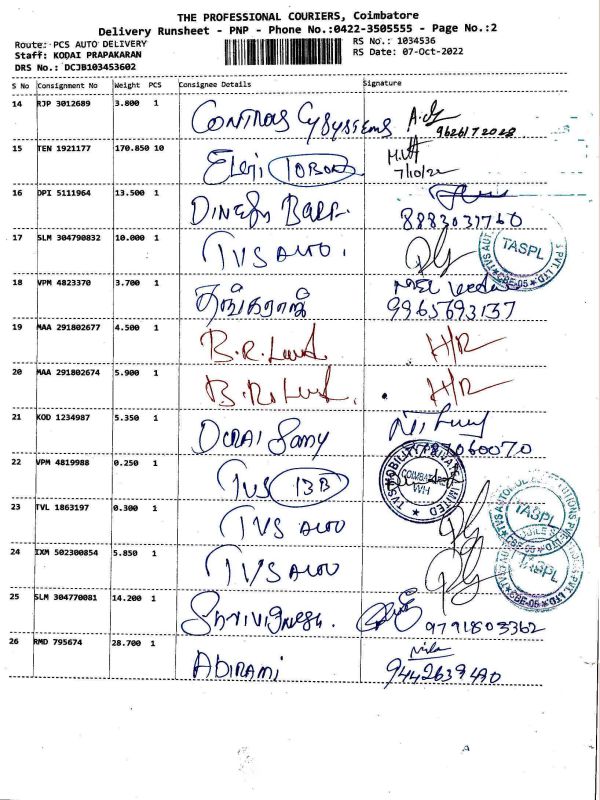 THE PROFESSIONAL COURIERS, Coimbatore
Delivery Runsheet - PNP - Phone No.:0422-3505555 - Page No.:2
Route: PCS AUTO DELIVERY
RS No.: 1034536
Staff: KODAI PRAPAKARAN
RS Date: 07-Oct-2022
DRS No.: DCJB103453602
S No Consignment No Weight PCS Consignee Details Signature
14 RJP 3012689 3.800 1
CONTROLS
15 TEN 1921177 170.850 10
7/10/22
16 DPI 5111964 13.500 1
DINESH
8883031760
17 SLM 304790832 10.000 1 TVS AUTO.
TASPL
CBE-05
18 VPM 4823370 3.700 1 தங்கராஜ்
9965693137
19 MAA 291802677 4.500 1 B.R. H/R
20 MAA 291802674 5.900 1 B.R. H/R
21 KOD 1234987 5.350 1 DURAI Samy
22 VPM 4819988 0.250 1 TVS 13B
TVS MOBILITY PRIVATE LIMITED
COIMBATORE
WH
23 TVL 1863197 0.300 1 TVS AUTO
TASPL
CBE-05
24 IXM 502300854 5.850 1 TVS AUTO
TASPL
CBE-05
25 SLM 304770081 14.200 1
9791803362
26 RMD 795674 28.700 1 ABIRAMI
9442639490